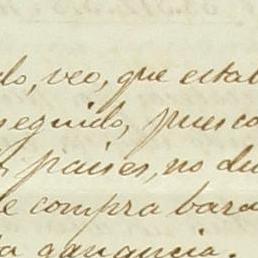 do, veo, que estab
seguido, pues co
países, no du
de compra bara
ta ganancia.